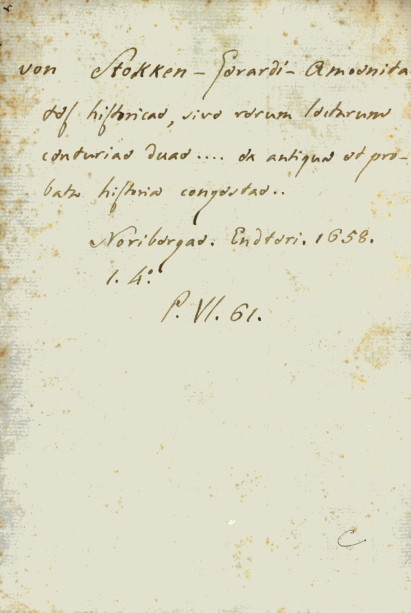 von Stokken – Gerardi – Amoenita
tes historicae, sive rerum lectarum
centuriae duae .... ex antiqua et pro-
bata historia congestae..
Noribergae. Endteri. 1658.
1. 4.º
P. VI. 61.
C